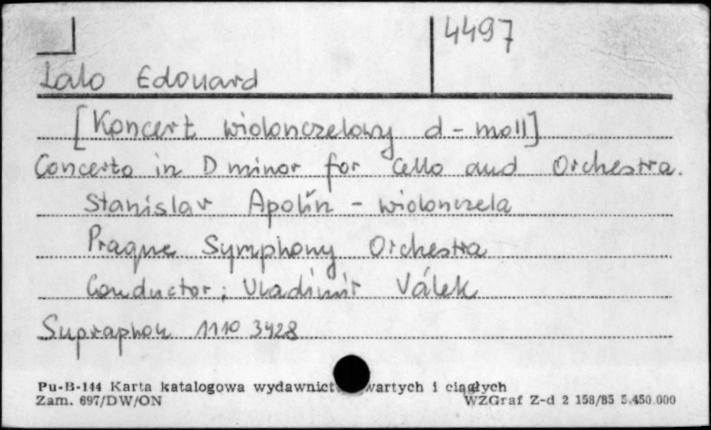 4497
Lalo Edouard
[Koncert wiolonczelowy d-moll]
Concerto in D minor for Cello and Orchestra.
Stanislav Apolín - wiolonczela
Prague Symphony Orchestra
Conductor: Vladimír Válek
Supraphon 1110 3428
Pu-B-144 Karta katalogowa wydawnict wartych i ciągłych
Zam. 697/DW/ON WZGraf Z-d 2 158/85 5.450.000